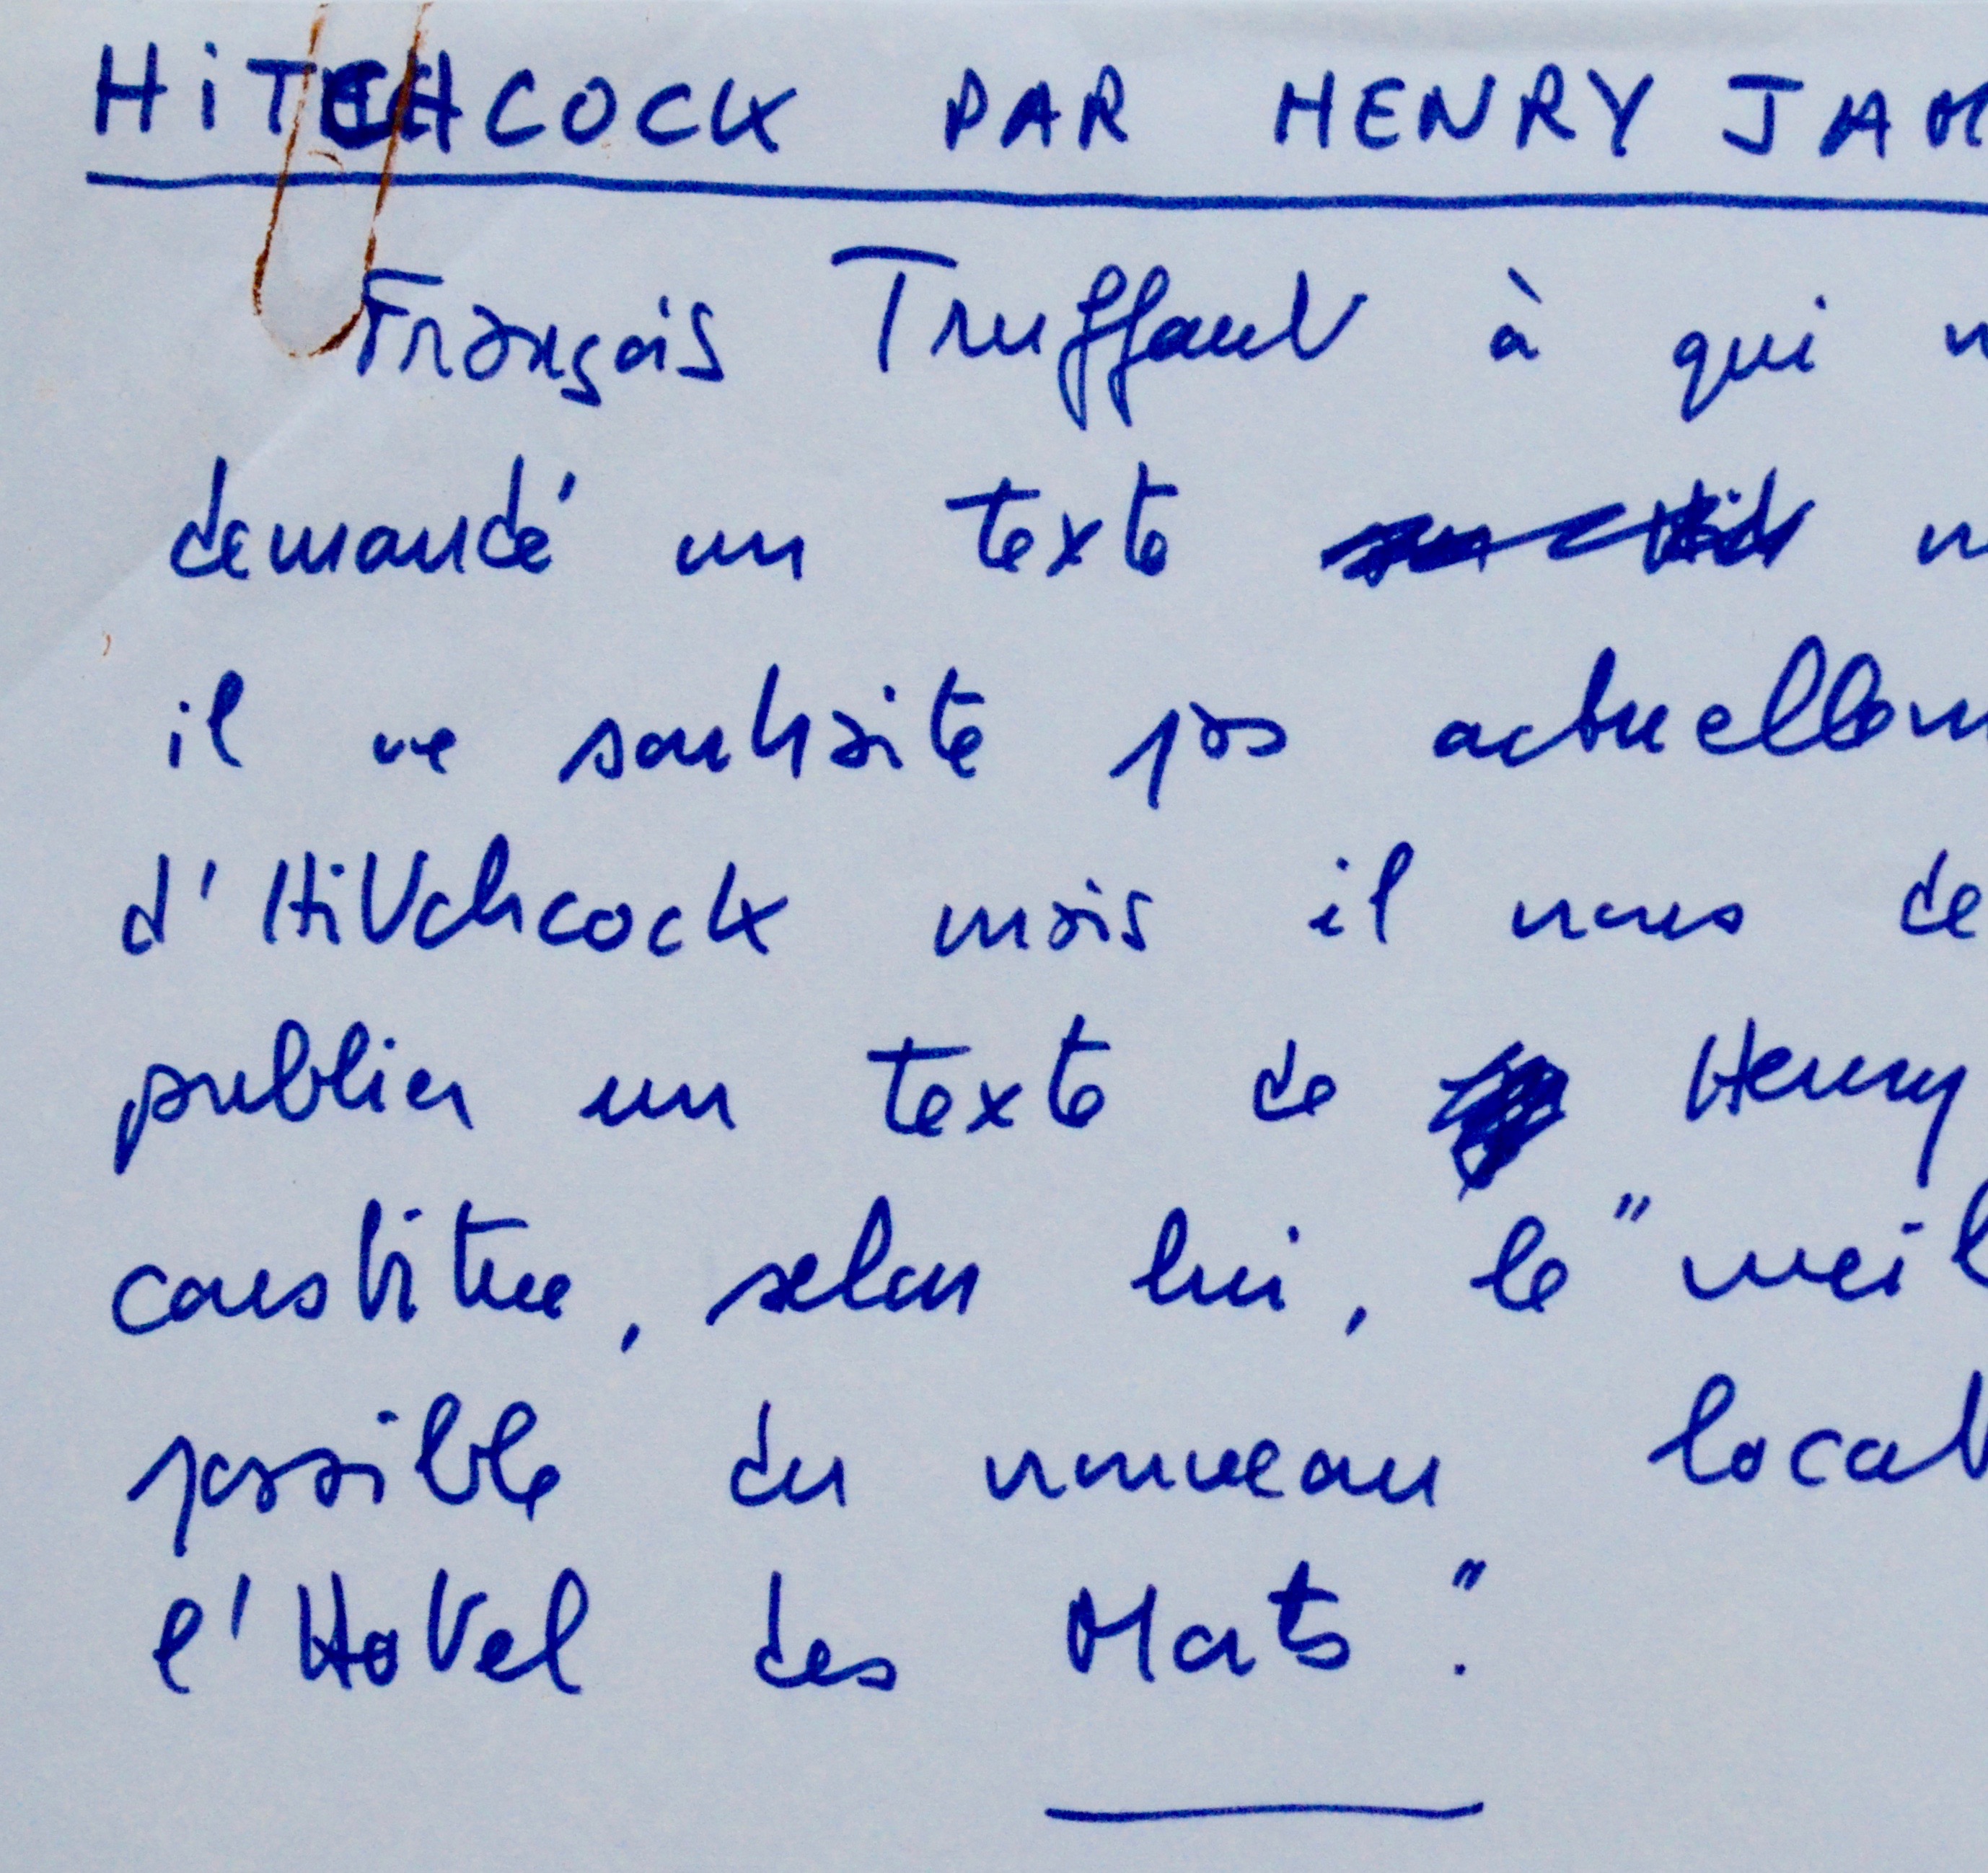 HITCHCOCK PAR HENRY JAM
François Truffaut à qui n
demandé un texte
il ne souhaite pas actuellem
d'Hitchcock mais il nous de
publier un texte de Henry
constitue, selon lui, le "meil
possible du nouveau locat
l'Hôtel des Morts".